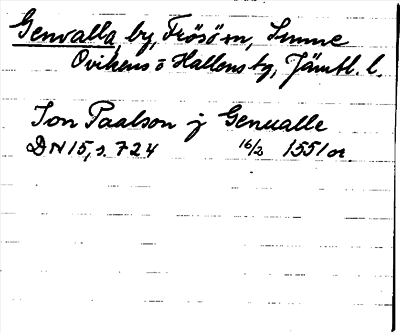 Genvalla, by, Frösö sn, Sunne
Ovikens o Hallens tg, Jämtl. l.
Jon Paalson j Genualle
DN 15, s. 724 16/2 1551 or